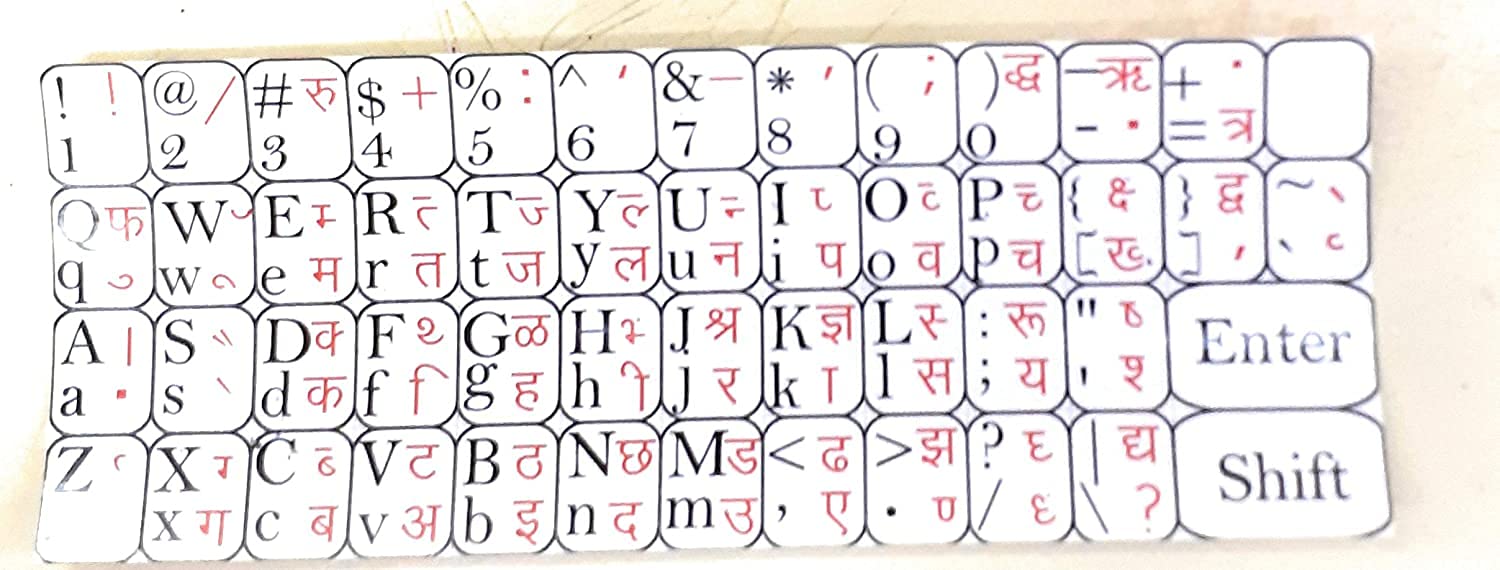 ! ! @ / # रु $ + % : ^ ' & — * ' ( ; ) द्ध — ऋ + ·
1 2 3 4 5 6 7 8 9 0 - · = त्र
Q फ W E म R त T ज Y ल U न I O P च { क्ष } द्व ~
q w e म r त t ज y ल u न i प o व p च [ ख ] , `
A | S D क F G ळ H J श्र K ज्ञ L स : रू " Enter
a · s d क f ि g ह h ी j र k ा l स ; य ' श
Z X C V ट B ठ N छ M ड < ढ > झ ? | द्य Shift
x ग c ब v अ b इ n द m उ , ए . / \ ?